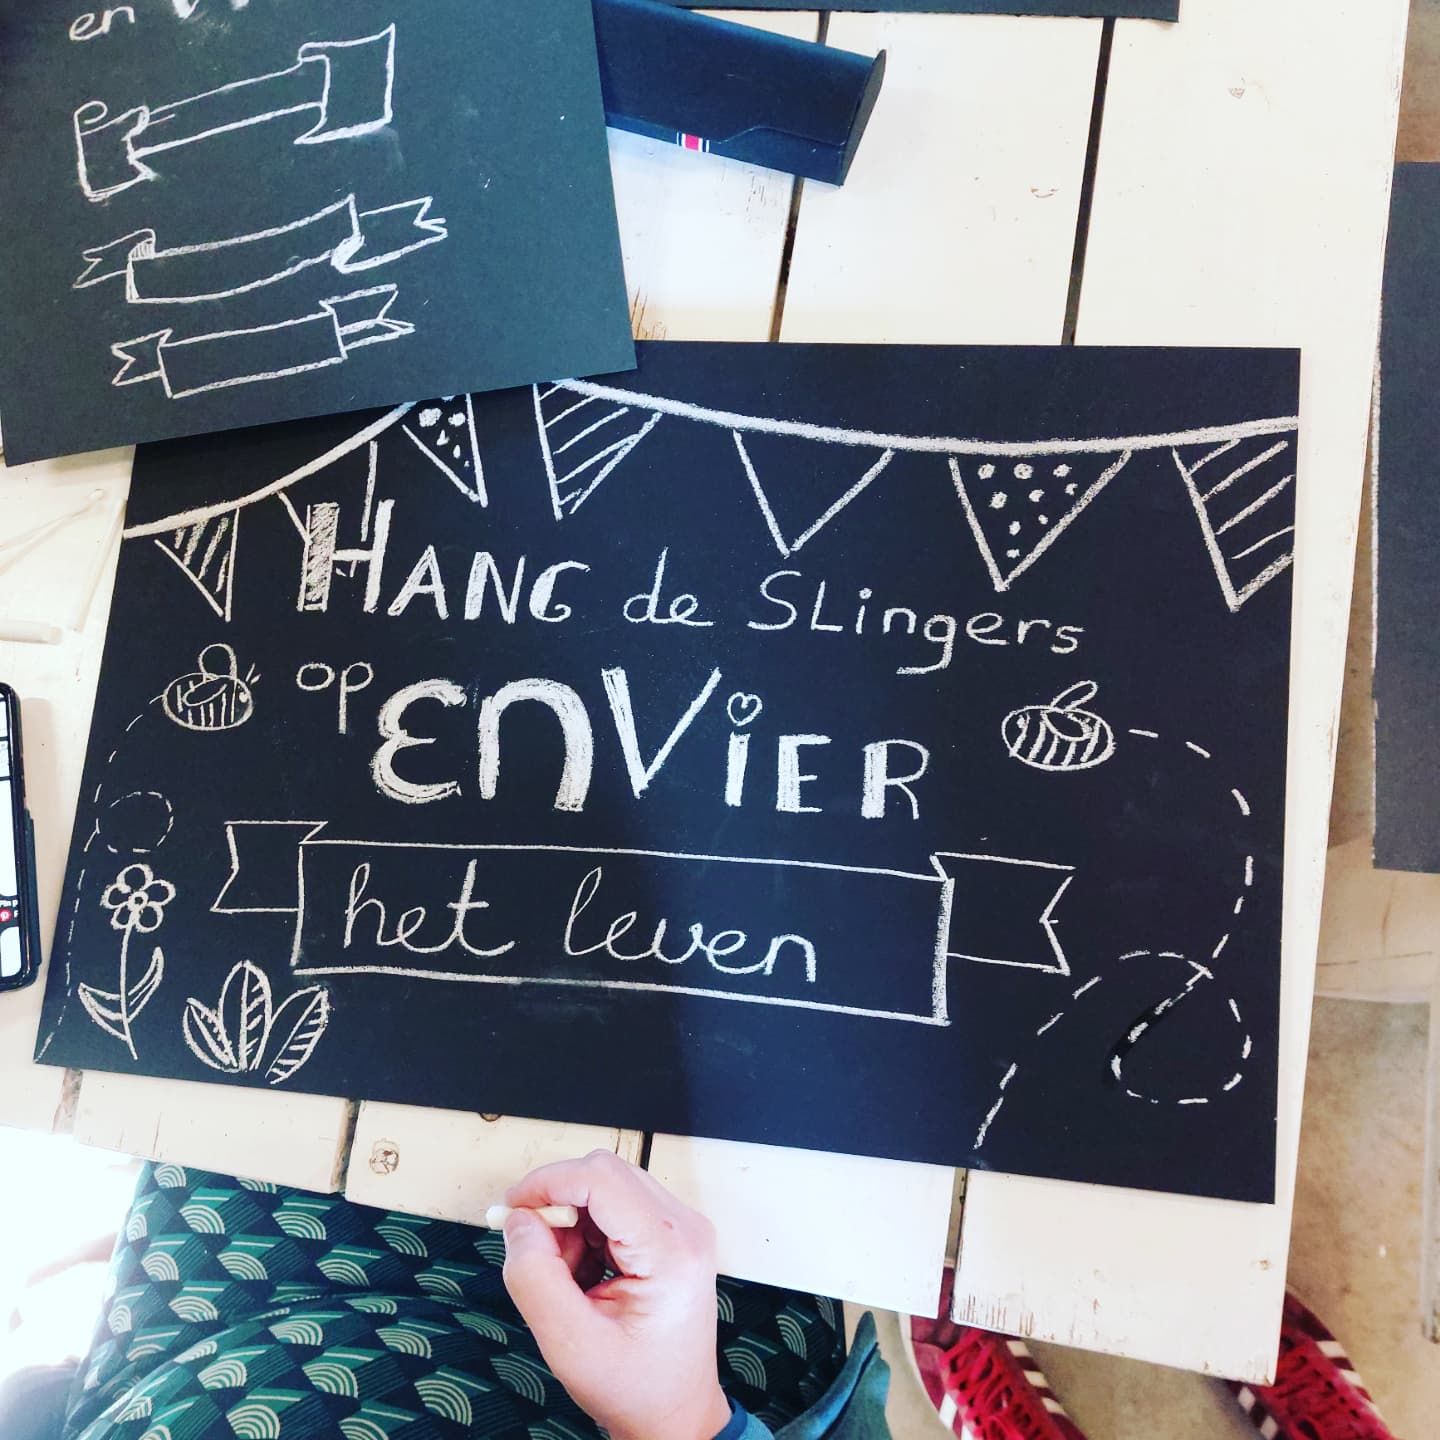 en
HANG de SLingers
op
ENViER
het leven